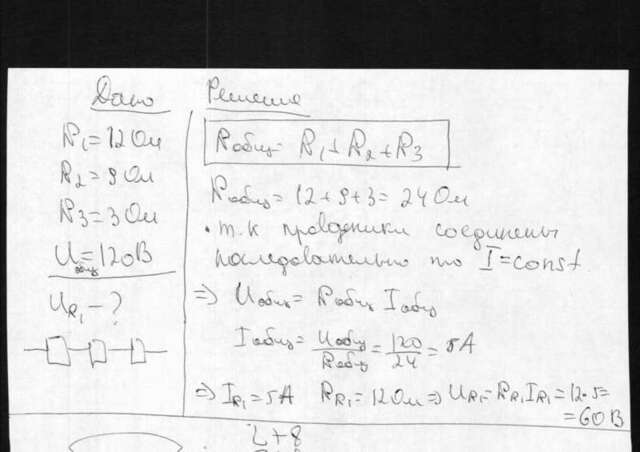 Дано
R₁=12 Ом
R₂=9 Ом
R₃=3 Ом
Uобщ=120В
UR₁-?
Решение
Rобщ= R₁+R₂+R₃
Rобщ=12+9+3=24 Ом
• т.к проводники соединены
последовательно то I=const.
=> Uобщ=Rобщ Iобщ
Iобщ=Uобщ/Rобщ=120/24=5А
=> IR₁=5А RR₁=12 Ом => UR₁=RR₁IR₁=12·5=
=60В
2+8